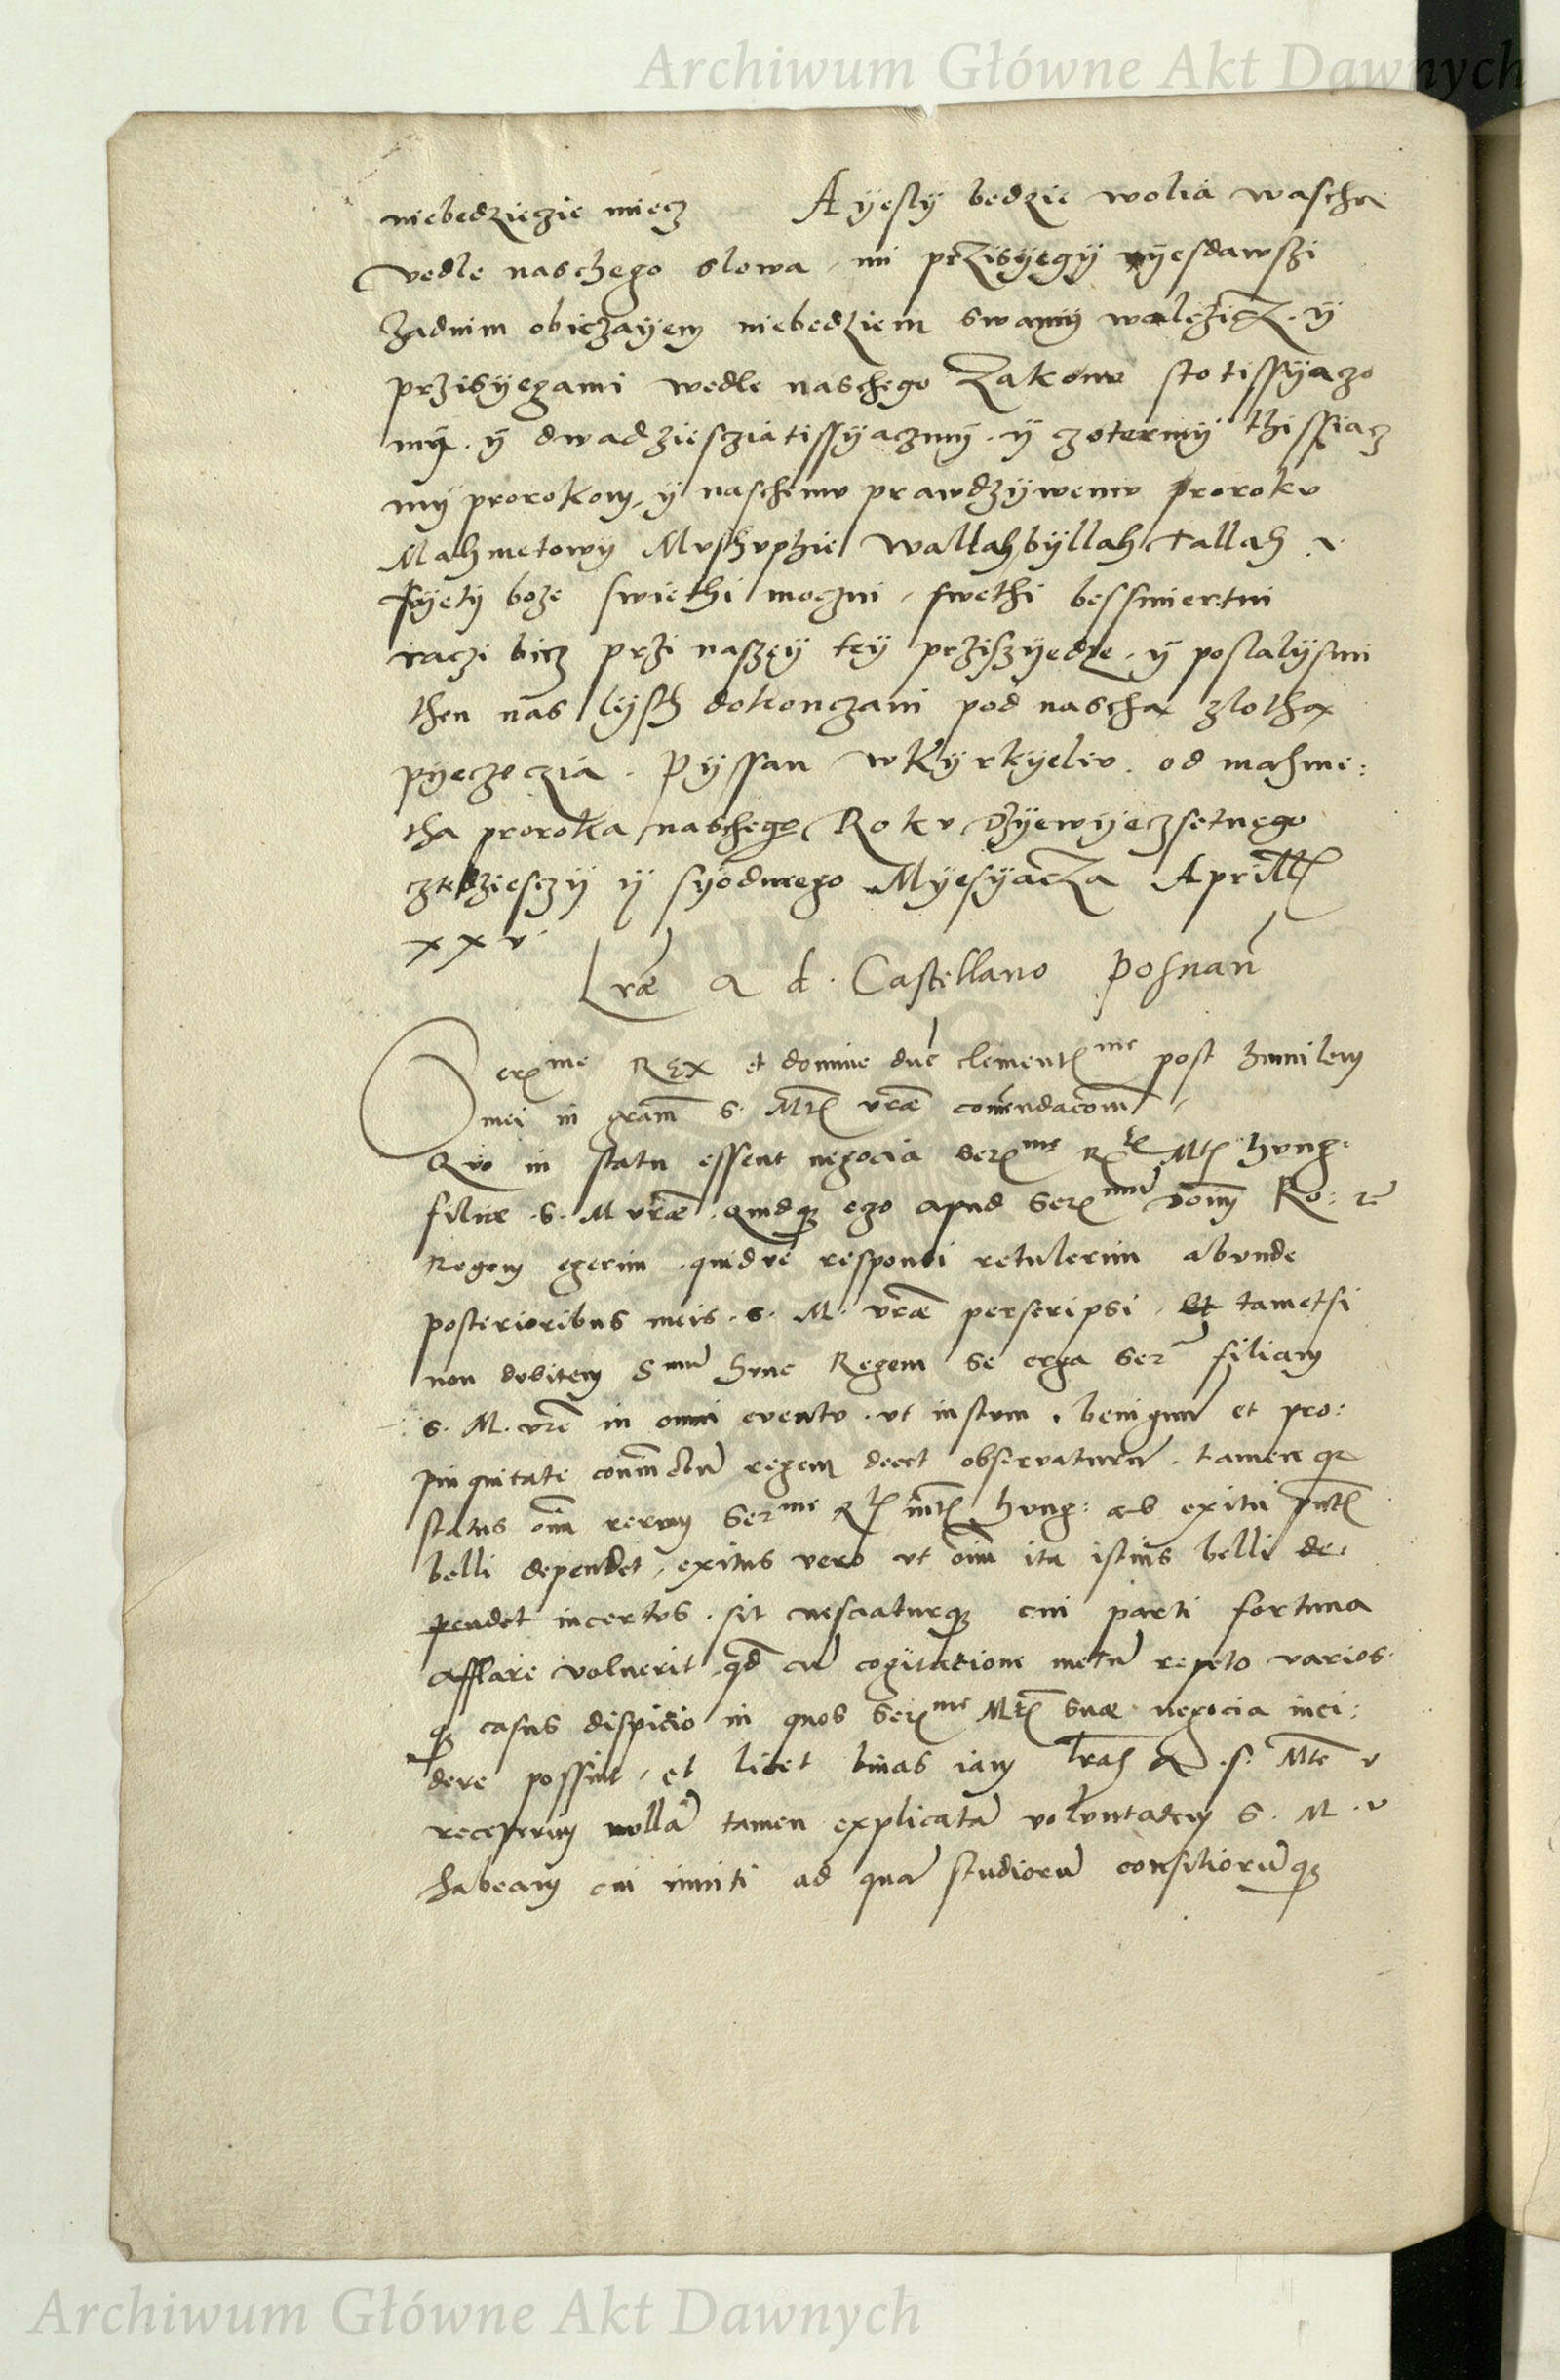 Archiwum Główne Akt Dawnych
niebedzieczie miecz A yesly bedzie wolia wascha
vedle naschego slowa, mi przisyegy nyesdawszi
zadnim obiczayem niebedziem swamy walczicz. y
przisyegami wedle naschego Zakonu stotissyaczo
my. y dwadziescziatissyaczmy. y czotermy thissiacz
my prorokom, y naschemu prawdzywemu proroku
Mahmetowy Muschuphie Wallah byllah tallah
swyety boze swiethi moczni, swethi bessmiertni
raczi bicz przi naszey tey prziszyedze. y poslalysmi
then nas lysth dokonczani pod nascha zlotha
pyeczeczia. Pyssan w Kyrkyeliv. od mahme:
tha proroka naschego Roku Dzyewyeczsetnego
czterdziesczy y syodmego Myesyacza Aprilis
xxv.
Lrae a d. Castellano Posnan
Serme Rex et domine dne clementme post humilem
mei in gram S. Mtis vrae comendacom,
Quo in statu essent negocia Serme Rlis Mtis Hung:
filiae S. M vrae. quidque ego apud Sermum Dom Ro:
Regem egerim. quidve responsi retulerim abunde
posterioribus meis. S. M. vrae perscripsi. Et tametsi
non dubitem Smum hunc Regem se erga Ser filiam
S. M. vre in omni eventu. ut iustum. benignum et pro:
pinquitate coniunctum regem decet observaturum. tamen quia
status oium rerum Serme Rlis Mtis Hung: ab exitu pntis
belli dependet, exitus vero ut oium ita istius belli de:
pendet incertus. sit nesciaturque cui parti fortuna
afflare voluerit. qd cum cogitatione mecum repeto varios
que casus dispicio in quos Serme Mtis suae negocia inci:
dere possint, et licet binas iam lras a S. Mte v
receperim nullam tamen explicatam voluntatem S. M. v
habeam cui inniti ad quam studiorum consiliorumque
Archiwum Główne Akt Dawnych